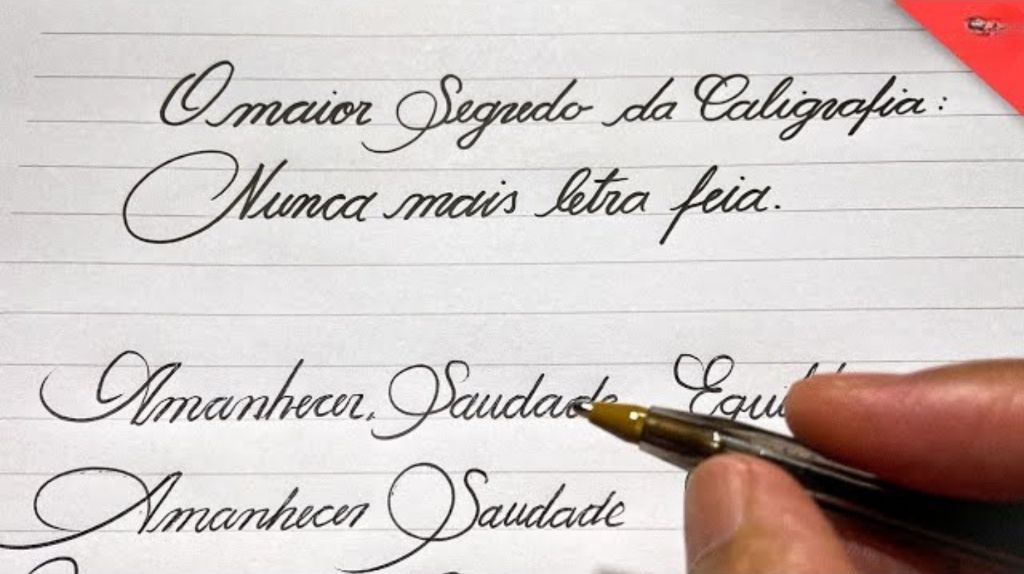 O maior Segredo da Caligrafia:
Nunca mais letra feia.
Amanhecer, Saudade
Amanhecer Saudade